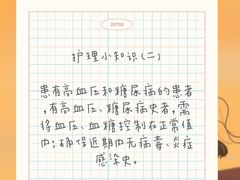 护理小知识(二)
患有高血压和糖尿病的患者
,有高血压、糖尿病史者,需
将血压、血糖控制在正常值
内;确保近期内无病毒、炎症
感染史。